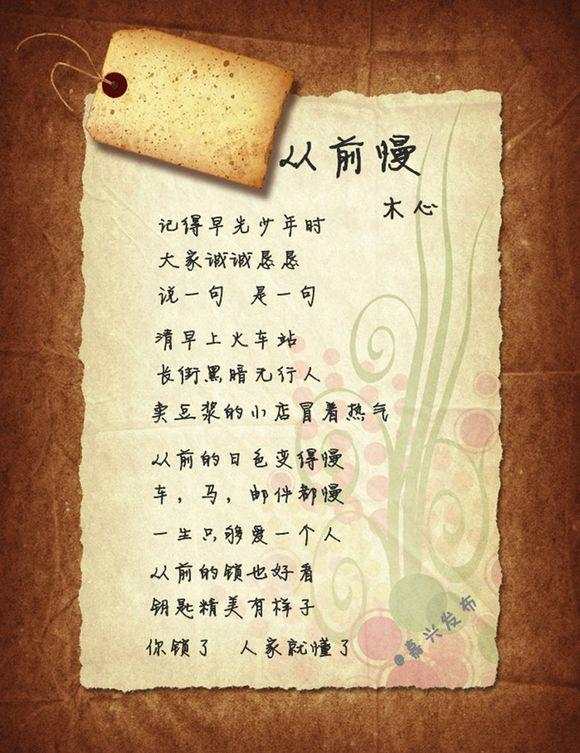 从前慢
木心
记得早先少年时
大家诚诚恳恳
说一句 是一句
清早上火车站
长街黑暗无行人
卖豆浆的小店冒着热气
从前的日色变得慢
车，马，邮件都慢
一生只够爱一个人
从前的锁也好看
钥匙精美有样子
你锁了 人家就懂了
嘉兴发布